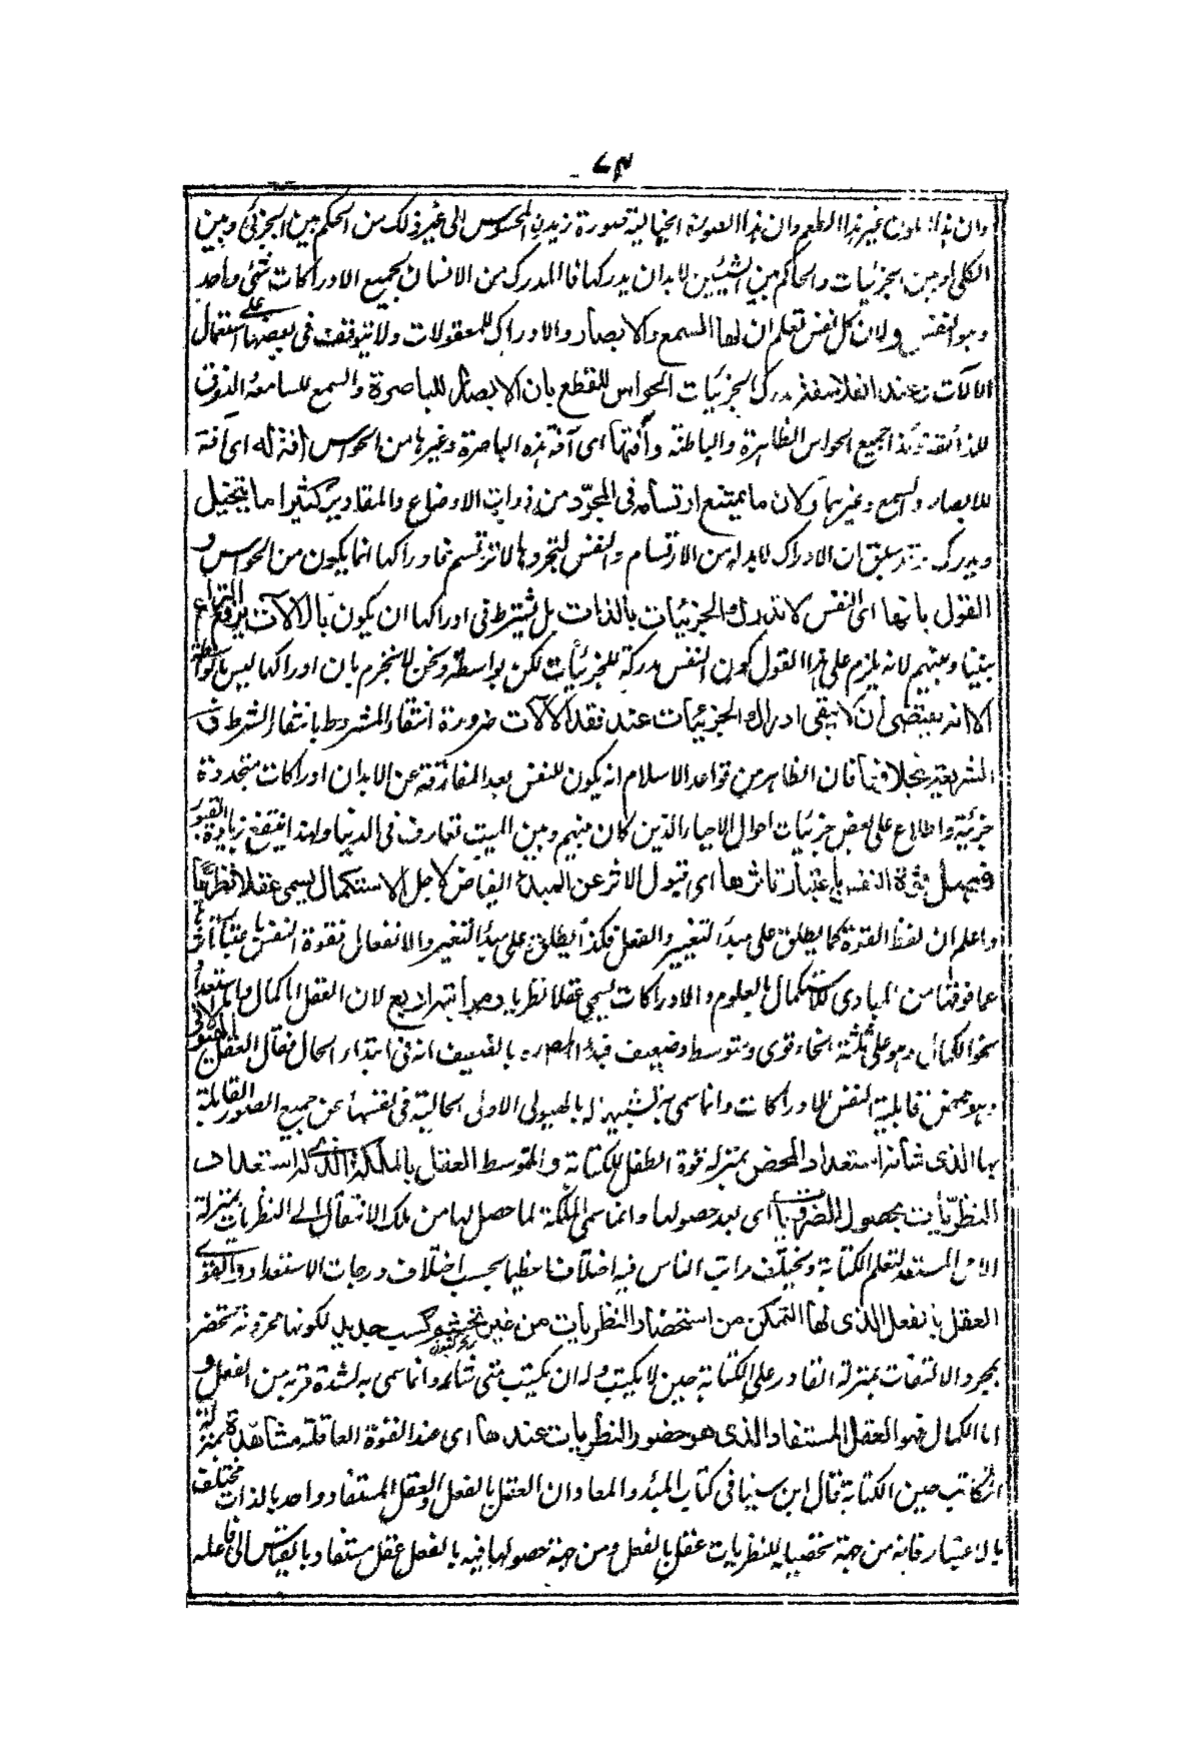 ٧٣
وان هذا اللون غير هذا الطعم وان هذا الصورة الخيالية صورة زيدن المحسوس الى غير ذلك من الحكم بين الجزئي وبين
الكلى او بين الجزئيات والحاكم بين الشيئين لا بد ان يدركهما فالمدرك من الانسان بجميع الادراكات شئى واحد
وهو النفس ولان كل نفس تعلم ان لها السمع والابصار والادراك للمعقولات ولا يتوقف فى بعضها على استعمال
الالآت وعند الفلاسفة مدرك الجزئيات الحواس للقطع بان الابصار للباصرة والسمع للسامعة الذوق
للذائقة وكذا جميع الحواس الظاهرة والباطنة وآفتها اى آفة هذه الباصرة وغيرها من الحواس آفة له اى آفة
للابصار والسمع وغيرهما ولان ما يمتنع ارتسامه فى المجرّد من ذوات الاوضاع والمقادير كثيرا ما يتخيل
ويدرك وقد سبق ان الادراك لا بد له من الارتسام والنفس لتجردها لا ترتسم فادراكها انما يكون من الحواس و
القول بانها اى النفس لا تدرك الجزئيات بالذات بل يشترط فى ادراكها ان يكون بالالات يرفع النزاع
بيننا وبينهم لانه يلزم على هذا القول كون النفس مدركة للجزئيات لكن بواسطة ونحن لا نجزم بان ادراكها ليس بالواسطة
الا انه يقتضى ان لا يبقى ادراك الجزئيات عند فقد الآلات ضرورة انتفاء المشروط بانتفاء الشرط و
الشريعة بخلافها فان الظاهر من قواعد الاسلام انه يكون للنفس بعد المفارقة عن الابدان ادراكات متجددة
جزئية واطلاع على بعض جزئيات احوال الاحياء الذين كان بينهم وبين الميت تعارف فى الدنيا ولهذا ينتفع بزيارة القبور
فصل قوة النفس باعتبار تاثرها اى قبول الاثر عن المبدأ الفياض لاجل الاستكمال يسمى عقلا نظريا
واعلم ان لفظ القوة كما يطلق على مبدأ التغيير والفعل فكذا يطلق على مبدأ التغير والانفعال فقوة النفس باعتبار تاثرها
عما فوقها من المبادى للاستكمال بالعلوم والادراكات يسمى عقلا نظريا ومراتبها اربع لان العقل اما كمال واما استعداد
نحو الكمال وهو على ثلثة انحاء قوى ومتوسط وضعيف بالضعيف انه فى ابتداء الحال فقال العقل الهيولانى
وهو محض قابلية النفس للادراكات وانما سمى به تشبيها له بالهيولى الاولى الخالية فى نفسها عن جميع الصور القابلة
بها الذى شانه استعداد المحض بمنزلة قوة الطفل للكتابة والمتوسط العقل بالملكة الذى له استعداد
النظريّات بحصول الضروريات اى بعد حصولها وانما سمى بالملكة لما حصل لها من ملك الانتقال الى النظريات بمنزلة
الامى المستعد لتعلم الكتابة ويختلف مراتب الناس فيه اختلافا عظيما بحسب اختلاف درجات الاستعداد والقوى
العقل بالفعل الذى لها التمكن من استحضار النظريات من غير تجشم كسب جديد لكونها مخزونة تحضر
بمجرد الالتفات بمنزلة القادر على الكتابة حين لا يكتب وله ان يكتب متى شاء وانما سمى به لشدة قربه من الفعل و
اما الكمال فهو العقل المستفاد الذى هو حضور النظريات عندها اى عند القوة العاقلة مشاهدة بمنزلة
الكاتب حين الكتابة قال ابن سينا فى كتاب المبدأ والمعاد ان العقل بالفعل والعقل المستفاد واحد بالذات مختلف
بالاعتبار فانه من جهة تحصيله للنظريات عقل بالفعل ومن جهة حصولها فيه بالفعل عقل مستفاد بالقياس الى فاعله